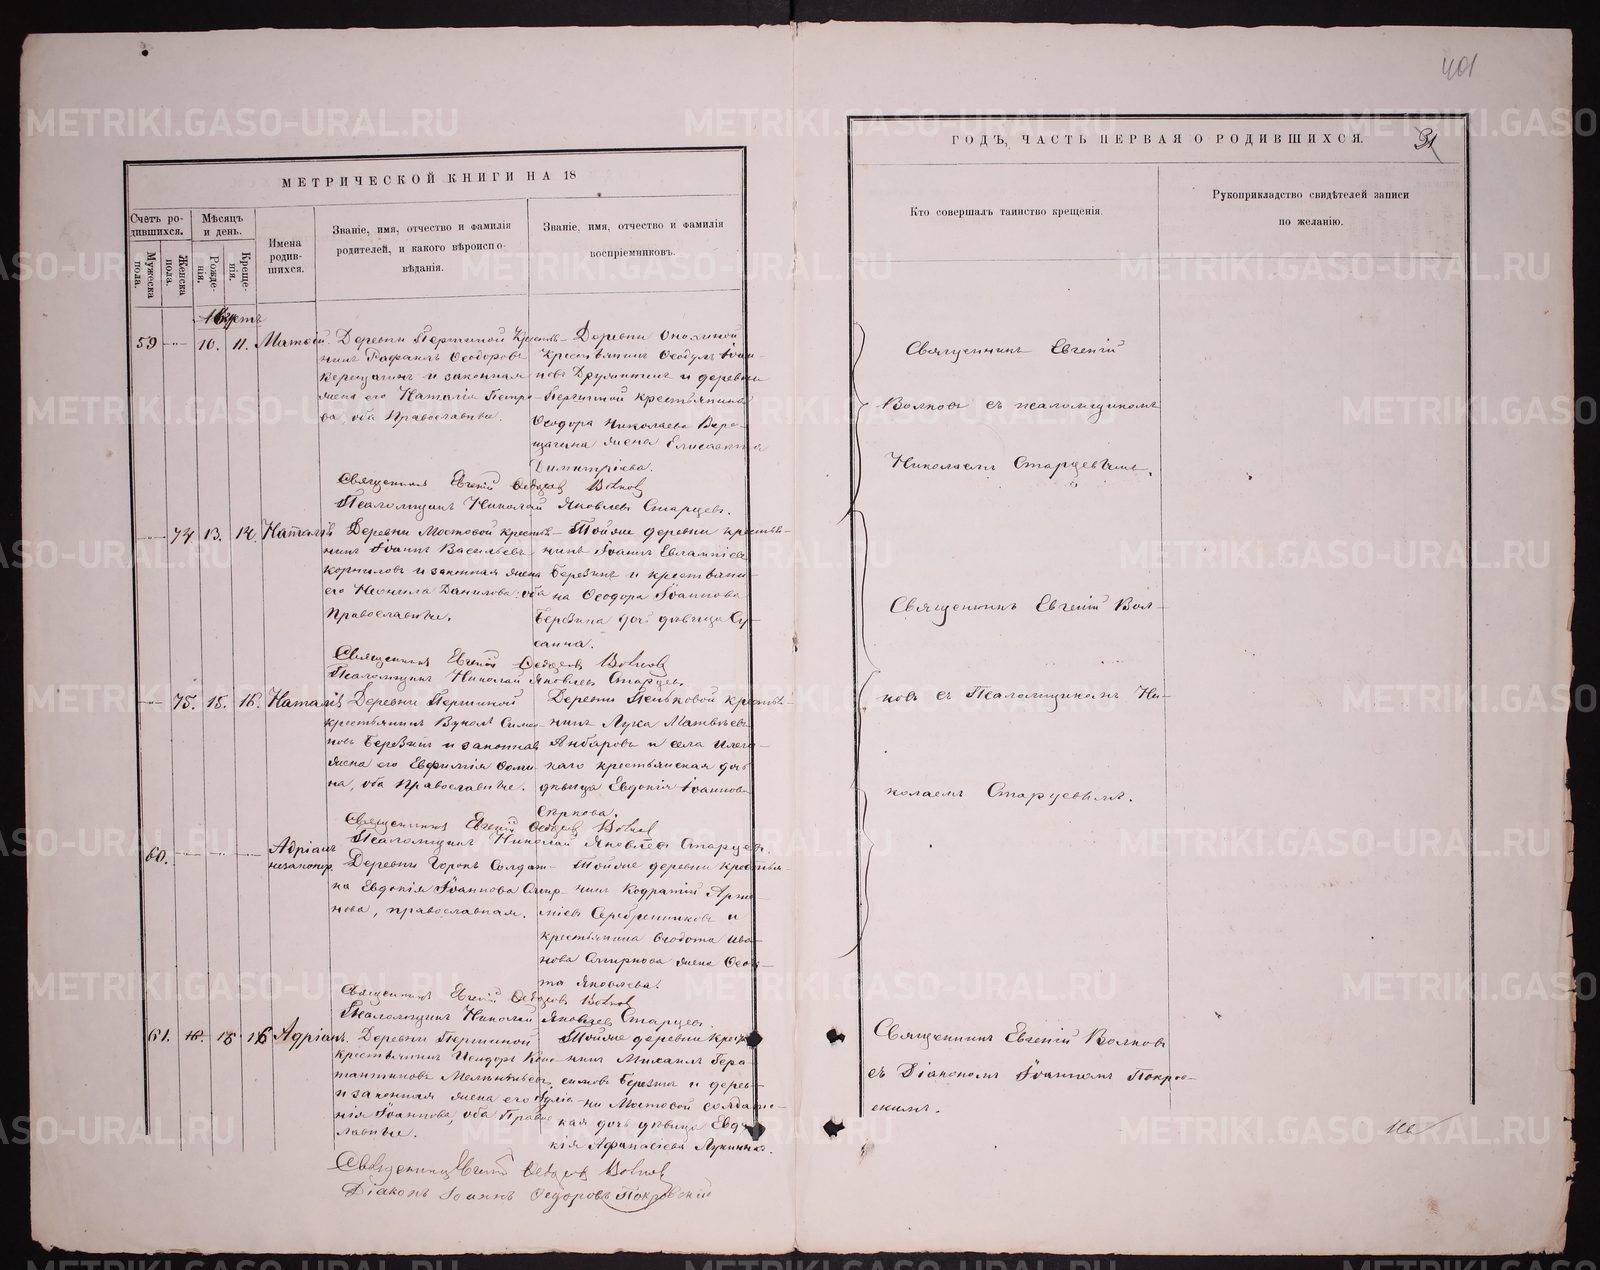 401
МЕТРИЧЕСКОЙ КНИГИ НА 18
ГОДЪ, ЧАСТЬ ПЕРВАЯ О РОДИВШИХСЯ.
31
Счетъ ро-
дившихся.
Мужеска пола.
Женска пола.
Мѣсяцъ и день.
Рожде-
нія.
Креще-
нія.
Имена
родив-
шихся.
Званіе, имя, отчество и фамилія
родителей, и какого вѣроиспо-
вѣданія.
Званіе, имя, отчество и фамилія
воспріемниковъ.
Кто совершалъ таинство крещенія.
Рукоприкладство свидѣтелей записи
по желанію.
Августъ
59 10. 11. Матѳій
Деревни Першиной Кресть-
нинъ Рафаилъ Ѳеодоровъ
и законная
жена его Наталія Петро-
ва, оба Православные.
Деревни
Крестьянинъ Ѳеодулъ Іоан-
новъ и деревни
Першиной крестьянина
Ѳеодора Николаева Вере-
щагина жена Елисавета
Димитріева.
Священникъ Евгеній Ѳеодоровъ Волковъ
Псаломщикъ Николай Яковлевъ Старцевъ.
Священникъ Евгеній
Волковъ съ псаломщикомъ
Николаемъ Старцевымъ.
74 13. 14. Наталія
Деревни Мостовой крестья-
нинъ Іоаннъ Васильевъ
Корниловъ и законная жена
его Неонила Данилова, оба
Православные.
Тойже деревни крестья-
нинъ Іоаннъ Евлампіевъ
Березинъ и крестьяни-
на Ѳеодора Іоаннова
Березина дочь дѣвица Су-
санна.
Священникъ Евгеній Ѳеодоровъ Волковъ
Псаломщикъ Николай Яковлевъ Старцевъ.
Священникъ Евгеній Вол-
ковъ съ Псаломщикомъ Ни-
колаемъ Старцевымъ.
75. 15. 16. Наталія
Деревни Першиной
крестьянинъ Вуколъ Симео-
новъ Березинъ и законная
жена его Евфимія Ѳоми-
на, оба Православные.
Деревни Пеньковой крестья-
нинъ Лука Матвѣевъ
Анбаровъ и села
крестьянская дочь
дѣвица Евдокія Іоаннова
Сѣркова.
Священникъ Евгеній Ѳеодоровъ Волковъ
Псаломщикъ Николай Яковлевъ Старцевъ.
60. Адріанъ
незаконр.
Деревни Горокъ Солдат-
ка Евдокія Іоаннова Смир-
нова, православная.
Тойже деревни крестья-
нинъ Кодратій Арте-
міевъ Серебренниковъ и
крестьянина Ѳеодота Ива-
нова Смирнова жена Ѳеок-
та Яковлева.
Священникъ Евгеній Ѳеодоровъ Волковъ
Псаломщикъ Николай Яковлевъ Старцевъ.
61. 15 16 Адріанъ.
Деревни Першиной
крестьянинъ Исидоръ Конс-
тантиновъ
и законная жена его Іуліа-
нія Іоаннова, оба Право-
славные.
Тойже деревни Крест-
нинъ Михаилъ Гера-
симовъ Березинъ и дерев-
ни Мостовой солдатс-
кая дочь дѣвица Евдо-
кія Аѳанасіева Лукиныхъ.
Священникъ Евгеній Ѳеодоровъ Волковъ
Діаконъ Іоаннъ Ѳедоровъ Покровскій
Священникъ Евгеній Волковъ
съ Діакономъ Іоанномъ Покров-
скимъ.
METRIKI.GASO-URAL.RU